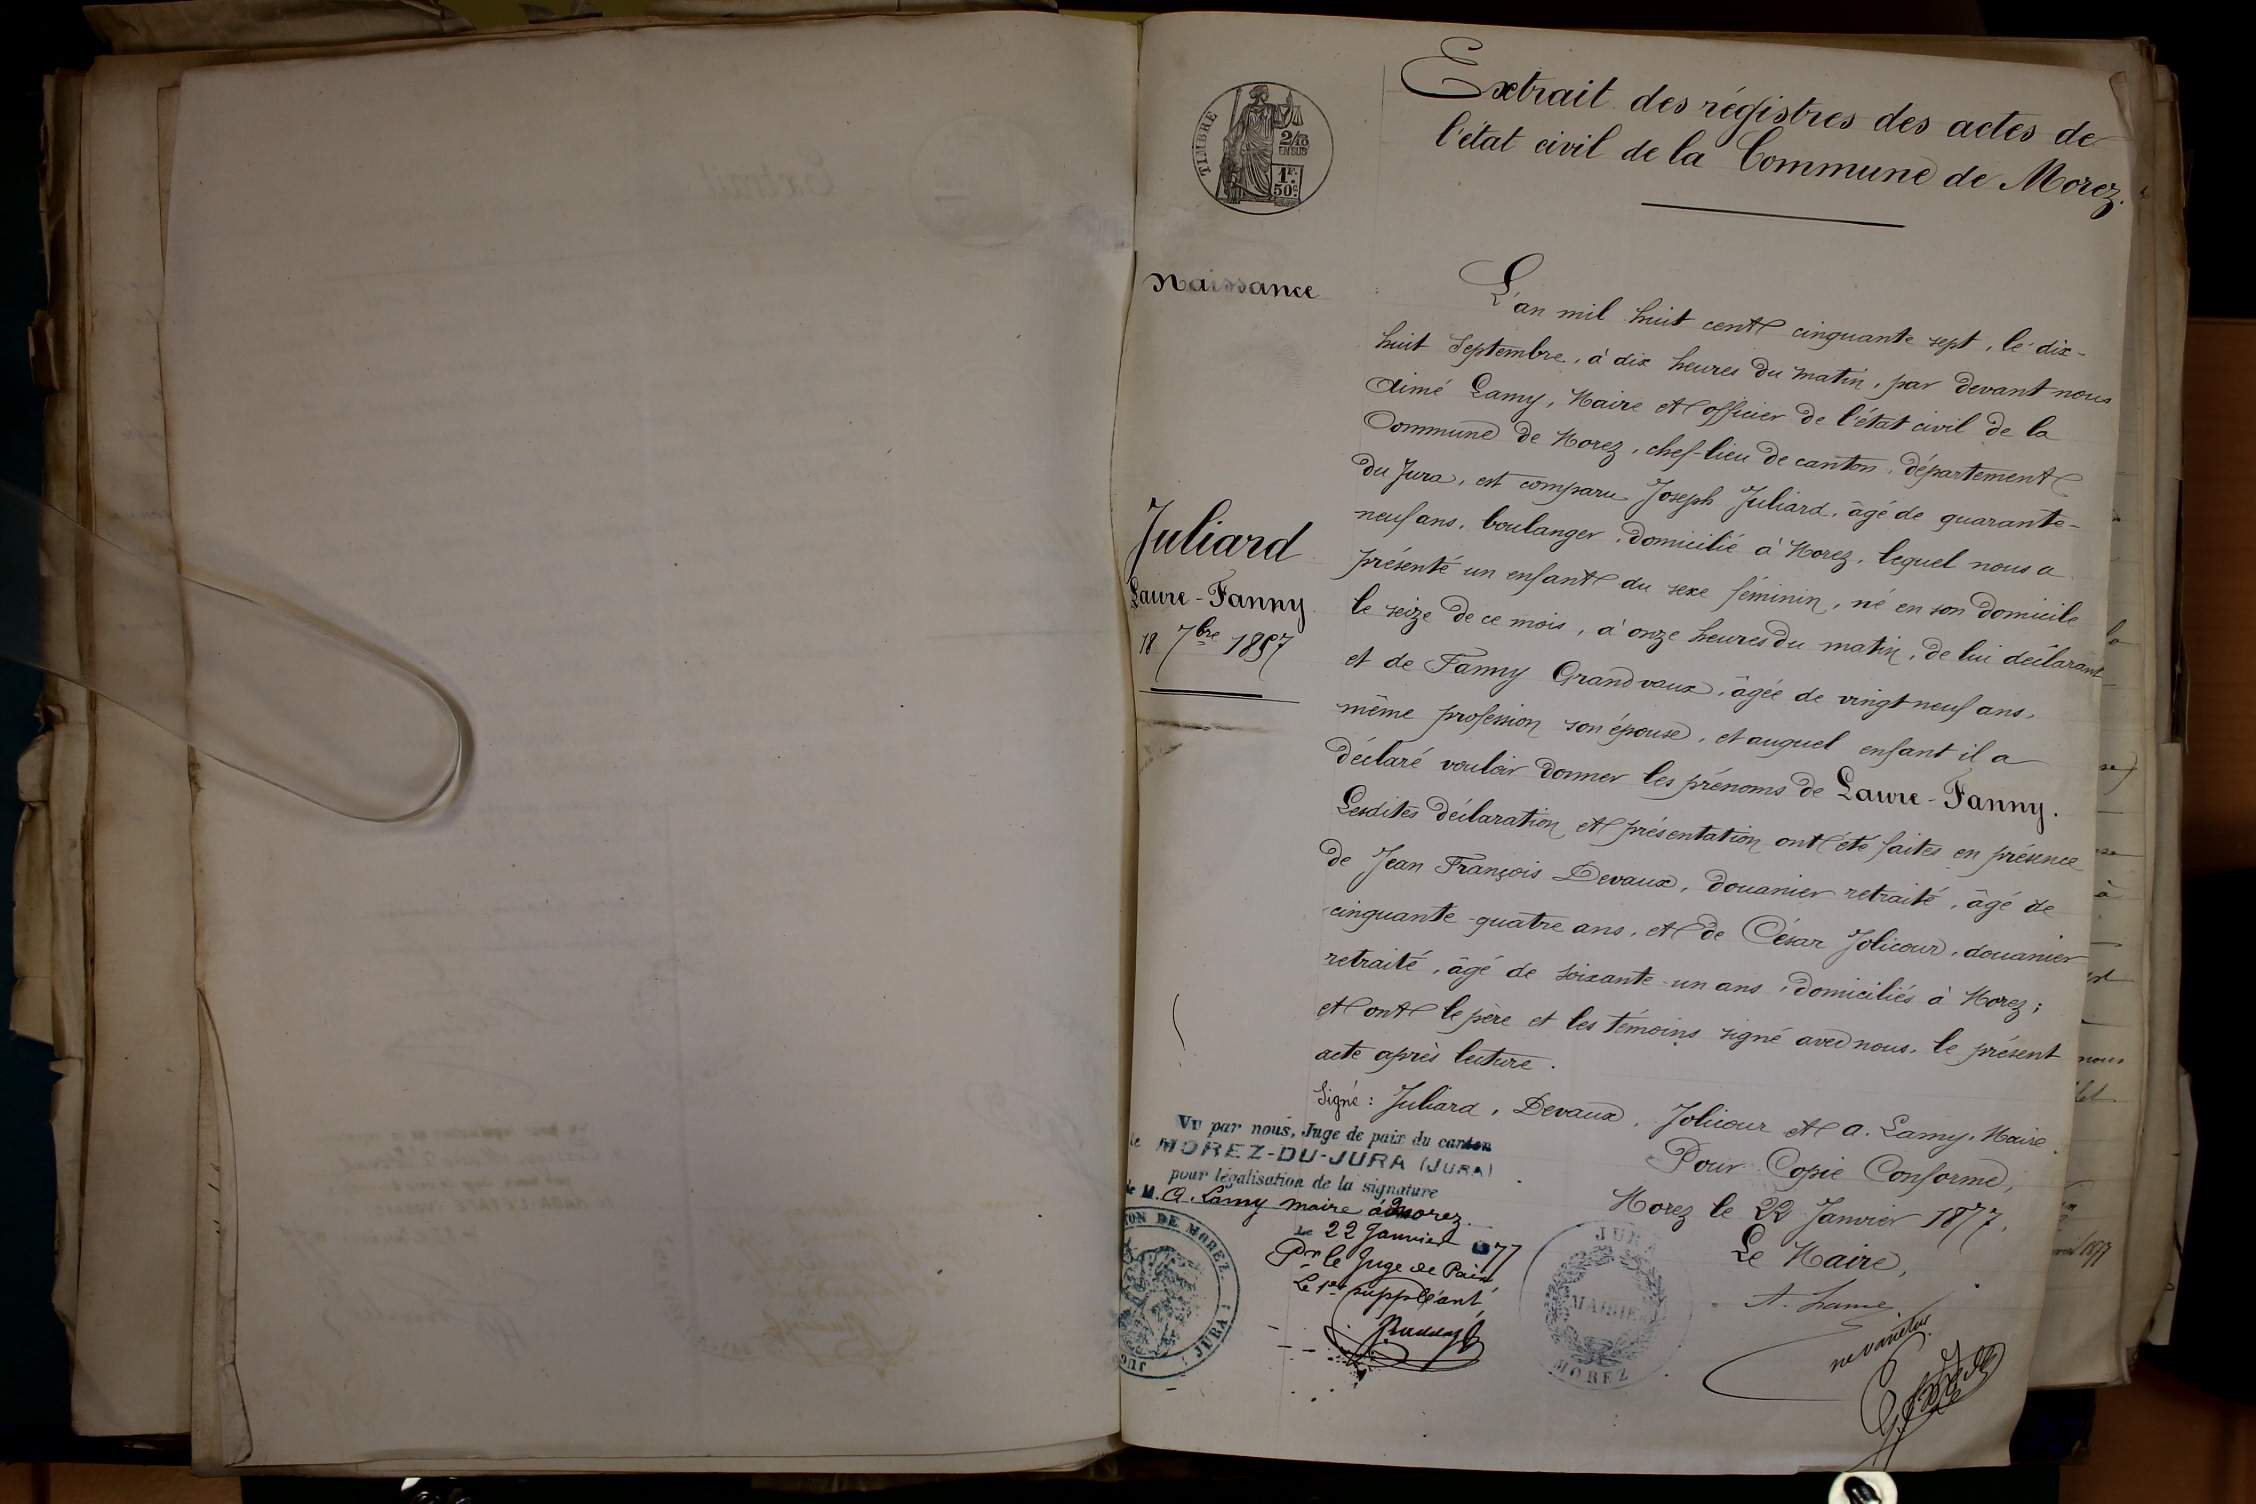 Extrait des régistres des actes de
l'état civil de la Commune de Morez.
TIMBRE
2/10
EN SUS
1F.
50c.
Naissance
Juliard
Laure-Fanny
18 7bre 1857
L'an mil huit cent cinquante sept, le dix-
huit Septembre, à dix heures du matin, par devant nous
Aimé Lamy, Maire et officier de l'état civil de la
Commune de Morez, chef-lieu de canton, département
du Jura, est comparu Joseph Juliard, âgé de quarante-
neuf ans, boulanger, domicilié à Morez, lequel nous a
présenté un enfant du sexe féminin, né en son domicile
le seize de ce mois, à onze heures du matin, de lui déclarant
et de Fanny Grandvaux, âgée de vingt neuf ans,
même profession son épouse, et auquel enfant il a
déclaré vouloir donner les prénoms de Laure-Fanny.
Lesdites déclaration et présentation ont été faites en présence
de Jean François Devaux, douanier retraité, âgé de
cinquante-quatre ans, et de César Jolicour, douanier
retraité, âgé de soixante-un ans, domiciliés à Morez;
et ont le père et les témoins signé avec nous, le présent
acte après lecture.
Signé: Juliard, Devaux, Jolicour et A. Lamy, Maire.
Pour Copie Conforme,
Morez le 22 Janvier 1877.
Le Maire,
A. Lamy
ne varietur
Vu par nous, Juge de paix du canton
de MOREZ-DU-JURA (JURA)
pour légalisation de la signature
de M. A. Lamy maire à Morez.
Le 22 Janvier 1877
Pr le Juge de Paix
Le 1er suppléant
TON DE MOREZ
JURA
JURA
MAIRIE
MOREZ